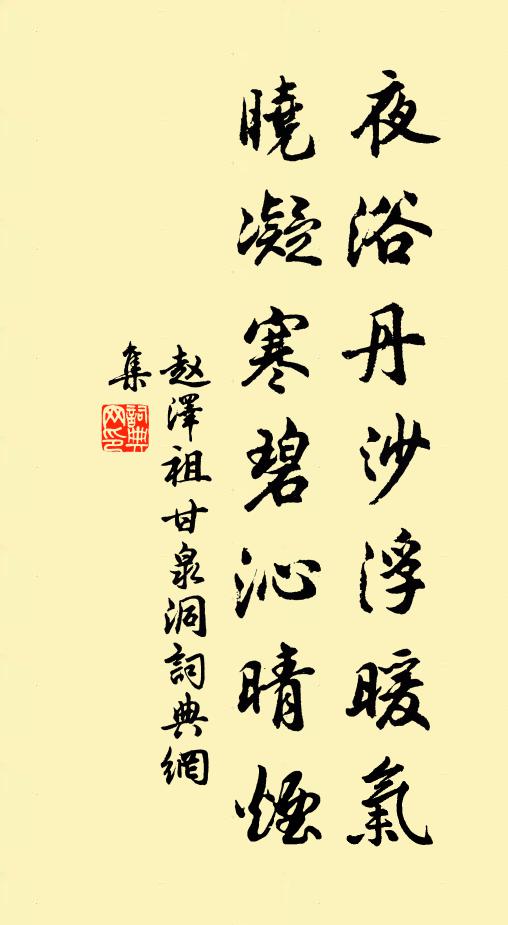 夜浴丹沙浮暖氣
曉凝寒碧沁晴煙
赵澤祖甘泉洞詞典網
集
詞典
网印